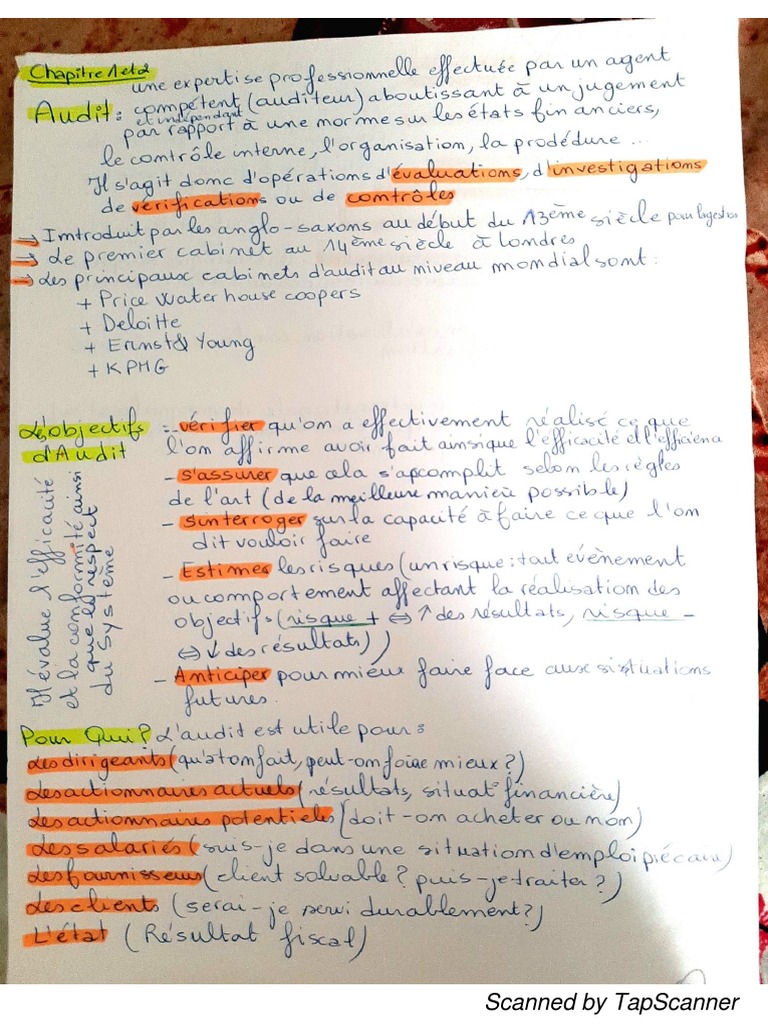 Chapitre 1 et 2
une expertise professionnelle effectuée par un agent
Audit : compétent (auditeur) aboutissant à un jugement
et indépendant
par rapport à une norme sur les états financiers,
le contrôle interne, l'organisation, la prodédure ...
Il s'agit donc d'opérations d'évaluations, d'investigations
de vérifications ou de contrôles
→ Introduit par les anglo-saxons au début du 13ème siècle pour la gestion
→ Le premier cabinet au 14ème siècle à Londres
→ Les principaux cabinets d'audit au niveau mondial sont :
+ Price Waterhouse coopers
+ Deloitte
+ Ernst & Young
+ KPMG
L'objectifs d'Audit
:- vérifier qu'on a effectivement réalisé ce que
l'on affirme avoir fait ainsi que l'efficacité et l'efficiena
- S'assurer que cela s'apcomplit selon les règles
de l'art (de la meilleure manière possible)
- S'interroger sur la capacité à faire ce que l'on
dit vouloir faire
- Estimer les risques (un risque : tout évènement
ou comportement affectant la réalisation des
objectifs (risque + ⇔ ↑ des résultats, risque -
⇔ ↓ des résultats))
- Anticiper pour mieux faire face aux situations
futures.
Il évalue l'efficacité
et la conformité ainsi
que le respect
du système
Pour Qui ? L'audit est utile pour :
Les dirigeants (qu'a ton fait, peut-on faire mieux ?)
Les actionnaires actuels (résultats, situat° financière)
Les actionnaires potentiels (doit-on acheter ou non)
Les salariés (suis-je dans une situation d'emploi précaire)
Les fournisseurs (client solvable ? puis-je traiter ?)
Les clients (serai-je servi durablement ?)
L'état (Résultat fiscal)
Scanned by TapScanner